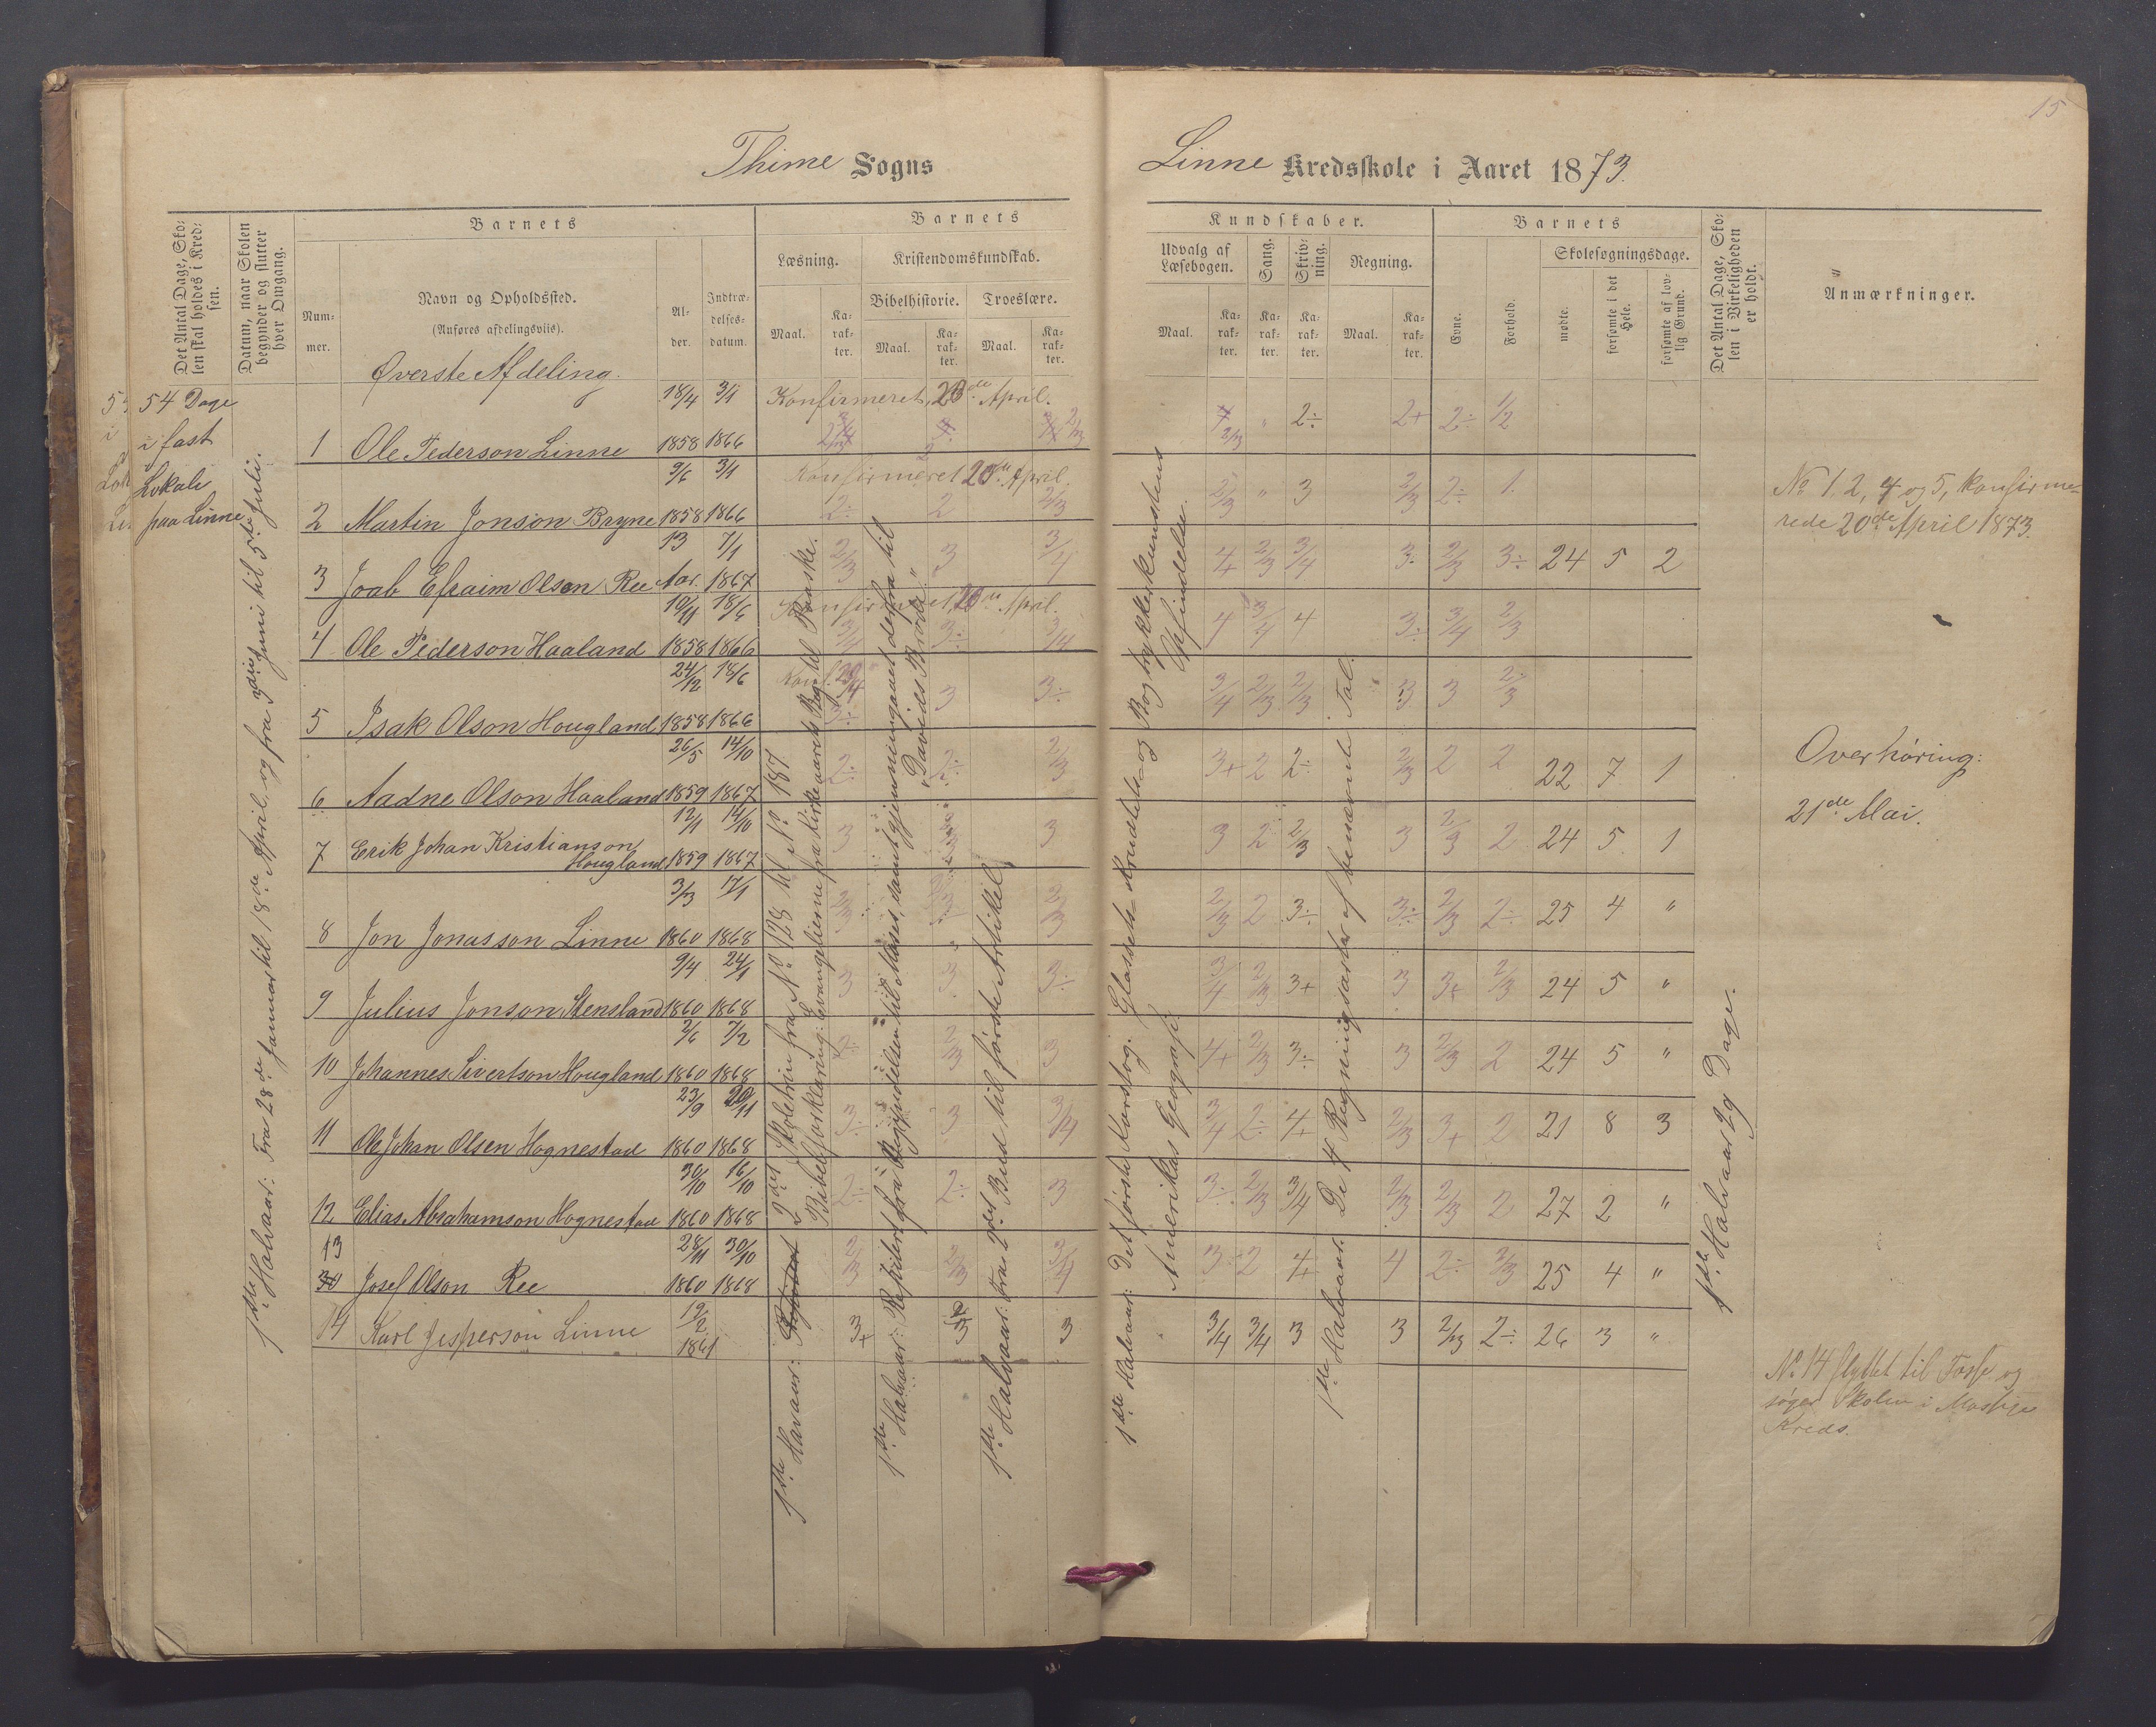 15
Thime Sogns
Linne Kredsskole i Aaret 1873.
Det Antal Dage, Sko-
len skal holdes i Kred-
sen.
Datum, naar Skolen
begynder og slutter
hver Omgang.
Barnets
Num-
mer.
Navn og Opholdssted.
(Anføres afdelingsviis).
Al-
der.
Indtræ-
delses-
datum.
Barnets
Læsning.
Kristendomskundskab.
Bibelhistorie.
Troeslære.
Maal.
Ka-
rak-
ter.
Maal.
Ka-
rak-
ter.
Maal.
Ka-
rak-
ter.
Kundskaber.
Udvalg af
Læsebogen.
Sang.
Skriv-
ning.
Regning.
Maal.
Ka-
rak-
ter.
Ka-
rak-
ter.
Ka-
rak-
ter.
Maal.
Ka-
rak-
ter.
Barnets
Evne.
Forhold.
Skolesøgningsdage.
mødte.
forsømte i det
Hele.
forsømte af lov-
lig Grund.
Det Antal Dage, Sko-
len i Virkeligheden
er holdt.
Anmærkninger.
Øverste Afdeling.
54 Dage
i fast
Lokale
paa Linne
1ste Halvaar: Fra 28de Januar til 18de April og fra 3die Juni til 5te Juli.
1 Ole Pederson Linne 18/4 1858 3/1 1866 Konfirmeret, 20de April. 2÷ 2+ 2÷ 1/2
2 Martin Jonson Bryne 9/6 1858 3/1 1866 Konfirmeret 20de April. 2÷ 2 2/3 2/3 " 3 2/3 2÷ 1
3 Joab Efraim Olson Ree 13 Aar. 7/1 1867 2/3 3 3/4 4+ 2/3 3/4 3÷ 2/3 3÷ 24 5 2
4 Ole Pederson Haaland 10/11 1858 18/6 1866 Konfirmeret, 20de April. 3/4 3÷ 3/4 4 3/4 4 3÷ 3/4 2/3
5 Isak Olson Hougland 24/12 1858 18/6 1866 Konf. 20/4 3÷ 3 3÷ 3/4 2/3 2/3 3 3 2/3
6 Aadne Olson Haaland 26/5 1859 14/10 1867 2÷ 2÷ 2/3 3+ 2 2÷ 2/3 2 2 22 7 1
7 Erik Johan Kristianson
Hougland 12/1 1859 14/10 1867 3 3 3 2 2/3 3 2/3 2 24 5 1
8 Jon Jonasson Linne 3/3 1860 17/1 1868 2/3 2/3 2/3 2 3÷ 3÷ 2/3 2÷ 25 4 "
9 Julius Jonson Stensland 9/4 1860 24/1 1868 3 3 3÷ 3/4 2/3 3+ 3 3+ 2/3 24 5 "
10 Johannes Sivertson Hougland 2/6 1860 7/2 1868 2÷ 2/3 3 4+ 2/3 3÷ 3 2/3 2 24 5 "
11 Ole Johan Olsen Hognestad 23/9 1860 20/11 1868 3÷ 3 3/4 3/4 2÷ 4+ 2/3 3+ 2 21 8 3
12 Elias Abrahamson Hognestad 30/10 1860 16/10 1868 2÷ 2÷ 3 3÷ 2/3 3/4 2/3 2/3 2 27 2 "
13 Josef Olson Ree 28/11 1860 30/10 1868 2/3 2/3 3/4 3÷ 2 4+ 4 2÷ 2/3 25 4 "
14 Karl Jesperson Linne 19/2 1861 3+ 3 3 3/4 3/4 3 3 2/3 2÷ 26 3 "
1ste Havaar: 2det Skoletrin fra No 128 til No 187
Bibelforklaring: Evangelierne fra Kirkeaarets Beg. til Paaske.
1ste Halvaar: Repetert fra Begyndelsen til Moses, samt gjennemgaaet derfra til
"Davids Brøde".
1ste Halvaar: Fra 2det Bud til første Artikel.
1ste Halvaar: Det første Korstog. Glassets- Krudtets- og Bogtrykkerkunstens
Opfindelse.
Amerikas Geografi.
1ste Halvaar: De 4 Regningsarter af benævnte Tal.
1ste Halvaar 29 Dage.
No 1. 2, 4 og 5, konfirme-
rede 20de April 1873.
Overhøring:
21de Mai.
No 14 flyttet til Fosse og
søger Skolen i
Kreds.